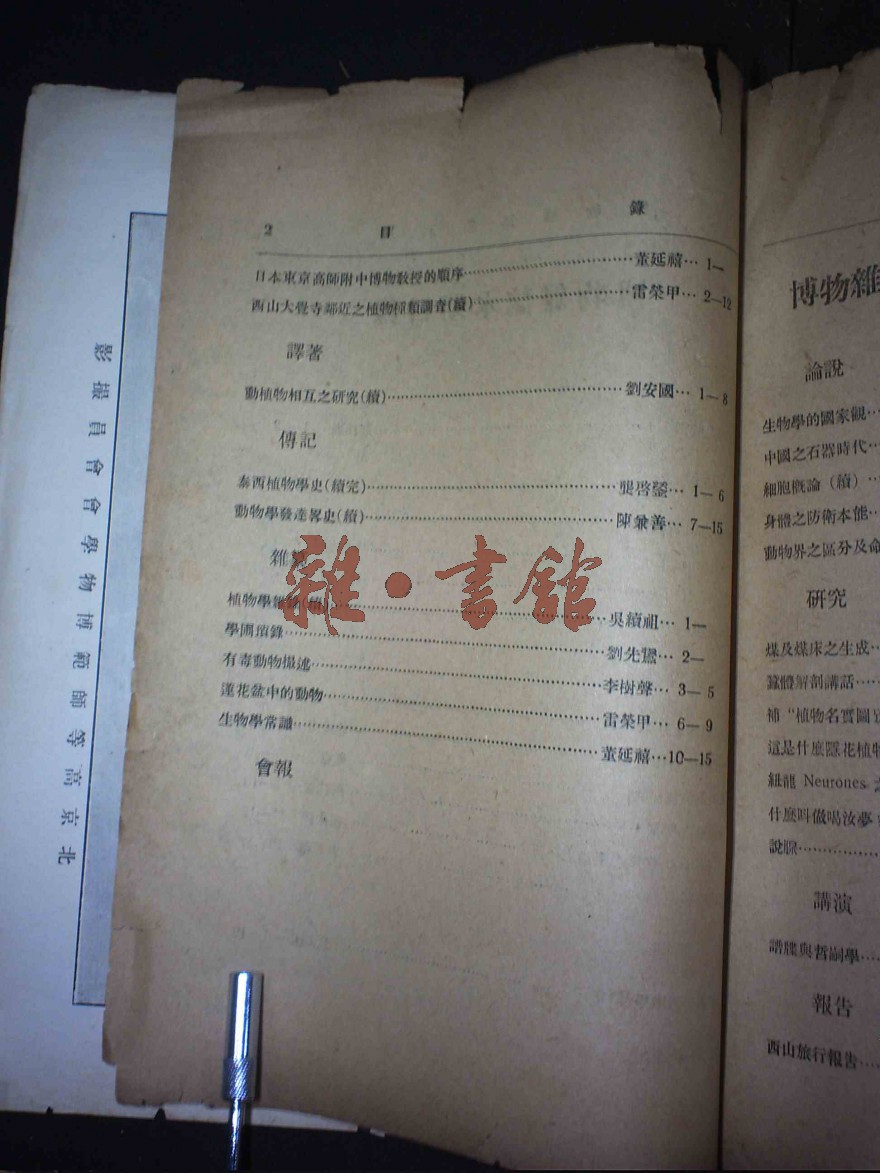 2 目 錄
日本東京高師附中博物教授的順序……董延禧…1—
西山大覺寺鄰近之植物種類調査(續)……雷榮甲…2—12
譯著
動植物相互之研究(續)……劉安國…1—8
傳記
泰西植物學史(續完)……龔啓鋆…1—6
動物學發達畧史(續)……陳兼善…7—15
雜纂
植物學雜錄(續)……吳續祖…1—
學圃瑣錄……劉先…2—
有毒動物撮述……李樹聲…3—5
蓮花盆中的動物……雷榮甲…6—9
生物學常識……董延禧…10—15
會報
雜·書館
北京高等師範博物學會會員撮影
博物雜
論說
生物學的國家觀…
中國之石器時代…
細胞槪論(續)…
身體之防衛本能…
動物界之區分及命
研究
煤及煤床之生成…
蠶體解剖講話……
補"植物名實圖
這是什麽隱花植物
紐龍 Neurones
什麽叫做喝汝夢
說腺……
講演
譜牒與哲嗣學…
報告
西山旅行報告…